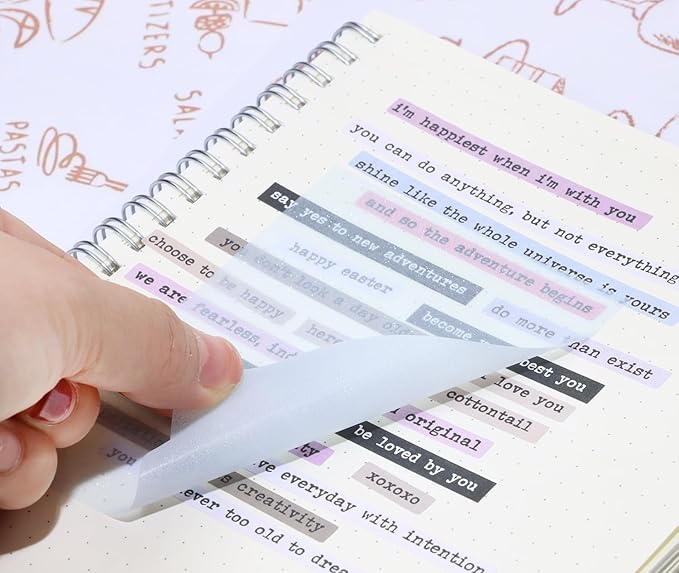 TIZERS
SAL
PASTAS
i'm happiest when i'm with you
you can do anything, but not everything
shine like the whole universe is yours
and so the adventure begins
say yes to new adventures
happy easter
do more than exist
choose to be happy
you don't look a day old
become best you
we are fearless, ind
here
love you
cottontail
original
be loved by you
ty
xoxoxo
you
everyday with intention
s creativity
ever too old to